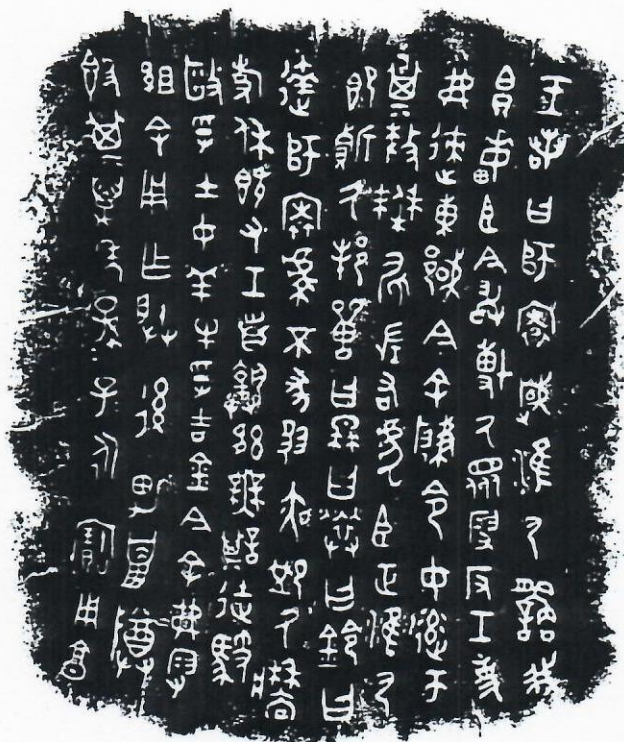 王若曰師寰淮尸繇我
帛畮臣今敢博厥眾叚反工吏
弗速東國今余肇令女達齊
㠱釐僰左右虎臣正淮尸
即厥邦獸曰冉曰曰鈴曰
達師寰虔不墜夙夜卹厥牆
事休既又工折首執訊無諆徒馭
毆孚士女羊牛孚吉金今余弗叚
組余用乍朕後男巤尊
簋其萬年孫子永寶用享